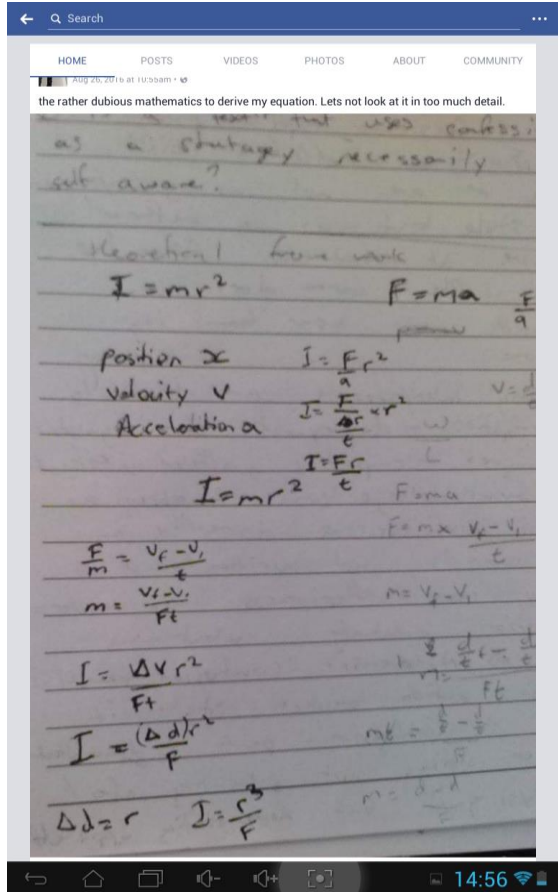 Search
HOME POSTS VIDEOS PHOTOS ABOUT COMMUNITY
Aug 26, 2016 at 10:55am
the rather dubious mathematics to derive my equation. Lets not look at it in too much detail.
that uses confessi
as a stratagey necessarily
self aware?
theoretical frame work
I = mr² F = ma F/a
position x I = F/a r²
velocity v I = F/(Δr/t) × r²
Acceleration a
I = Fr/t
I = mr² F = ma
F = m × (Vf - V1)/t
F/m = (Vf - V1)/t
m = (Vf - V1)/Ft m = Vf - V1
I = ΔV r²/Ft
I = (Δd)r²/F
Δd = r I = r³/F
14:56